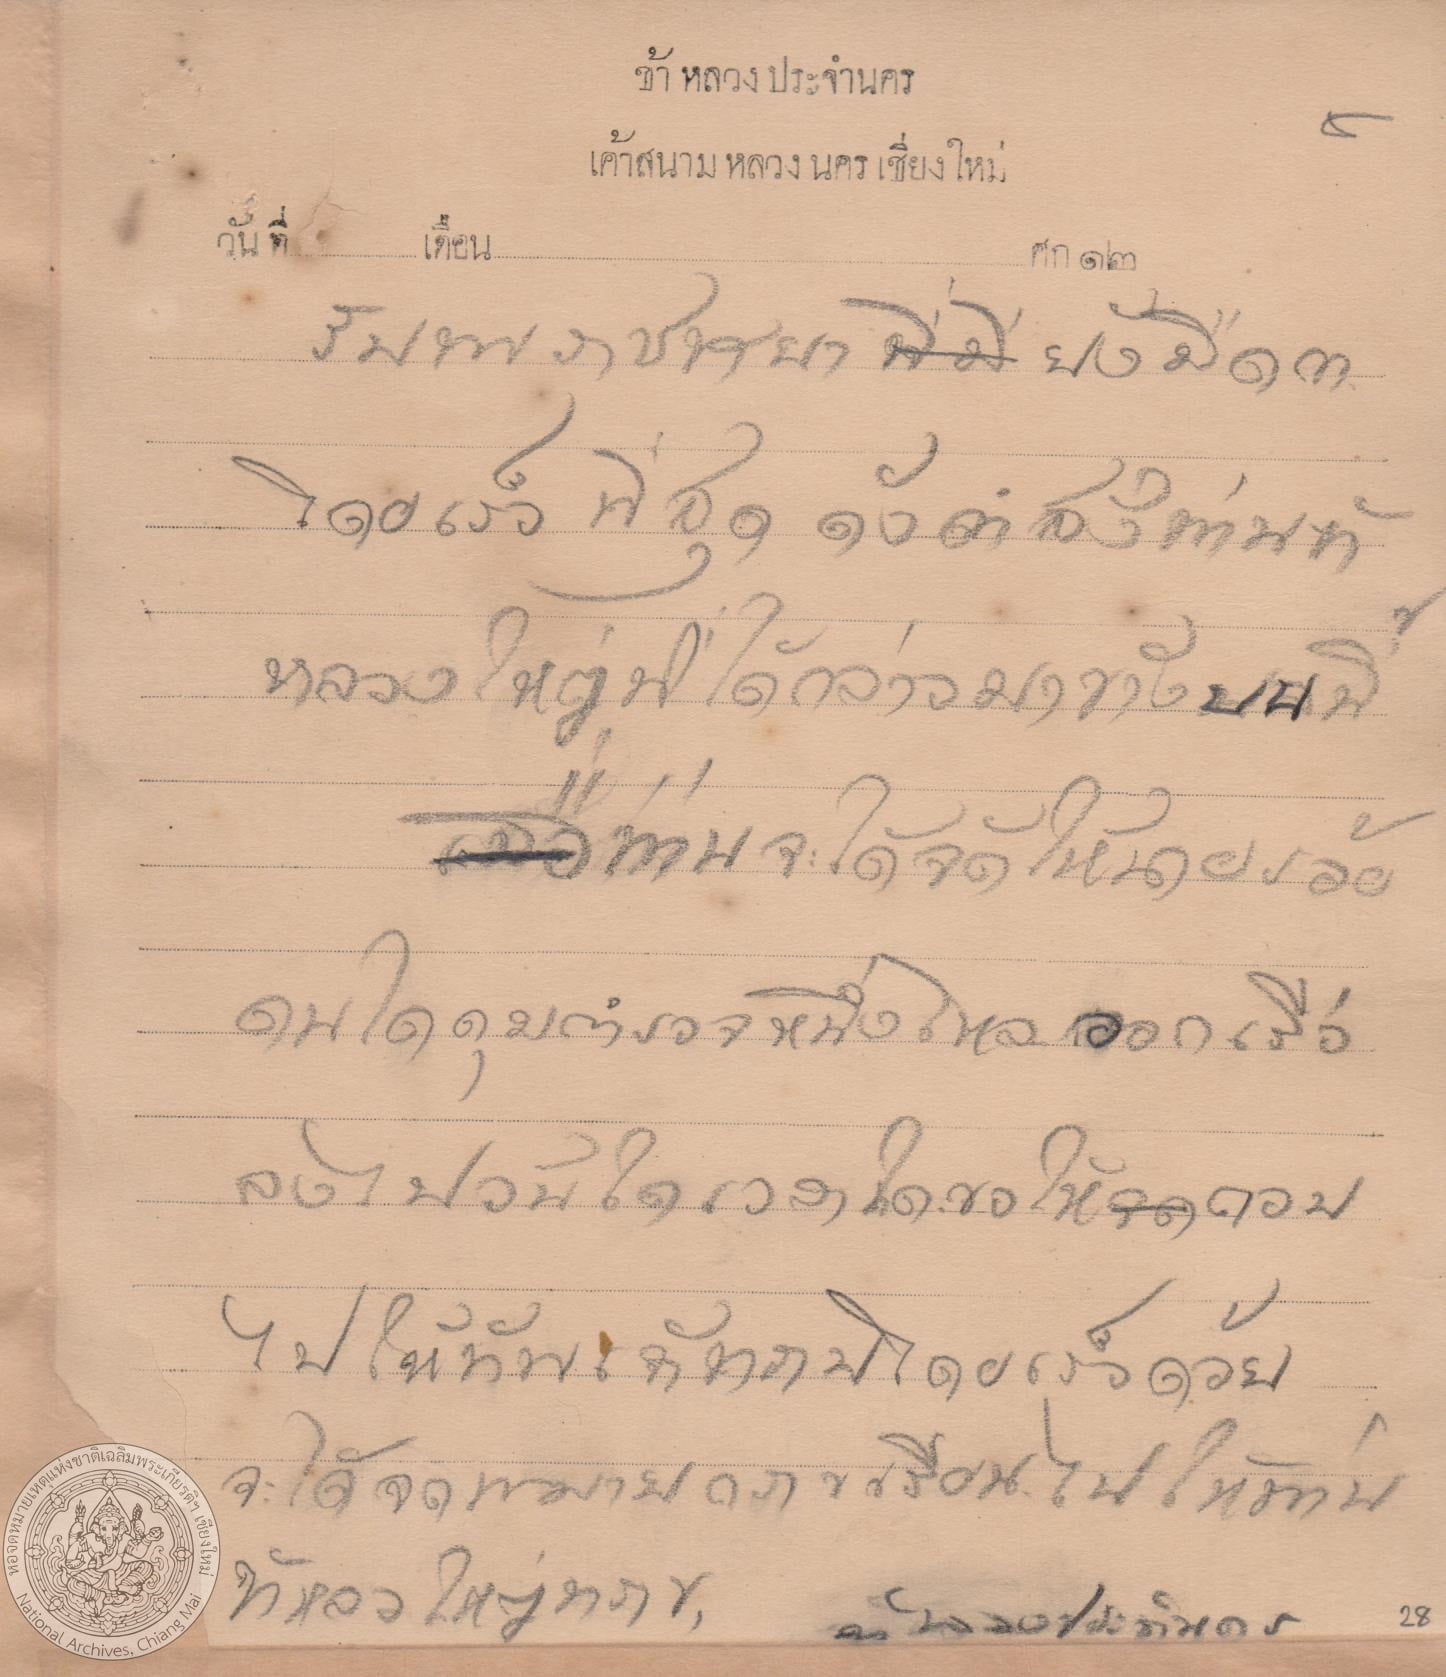 ข้าหลวงประจำนคร
๕
เค้าสนามหลวงนครเชียงใหม่
วันที่ เดือน ศก ๑๒๓
ยังมืด
โดยเร็วที่สุด ดังคำสั่งท่านข้า
หลวงใหญ่ที่ได้กล่าวมาข้างบนนี้
ท่านจะได้จัดให้นายร้อย
คนใดคุมตำรวจหนึ่งโหลออกเรือ
ลงไปวันใดเวลาใดขอให้ตอบ
ไปให้ทัน โดยเร็วด้วย
จะได้จดหมายกราบเรียนไปให้ท่าน
ข้าหลวงใหญ่ทราบ
ข้าหลวงประจำนคร
28
หอจดหมายเหตุแห่งชาติเฉลิมพระเกียรติฯ เชียงใหม่
National Archives, Chiang Mai